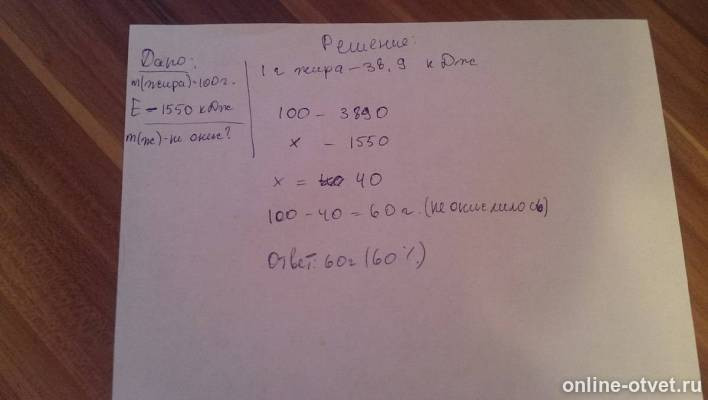 Решение:
Дано:
m(жира)-100г.
E-1550 кДж
m(ж)-не окис?
1 г жира-38,9 кДж
100 - 3890
x - 1550
x = 40
100-40=60г. (не окислилось)
Ответ: 60г (60%)
online-otvet.ru